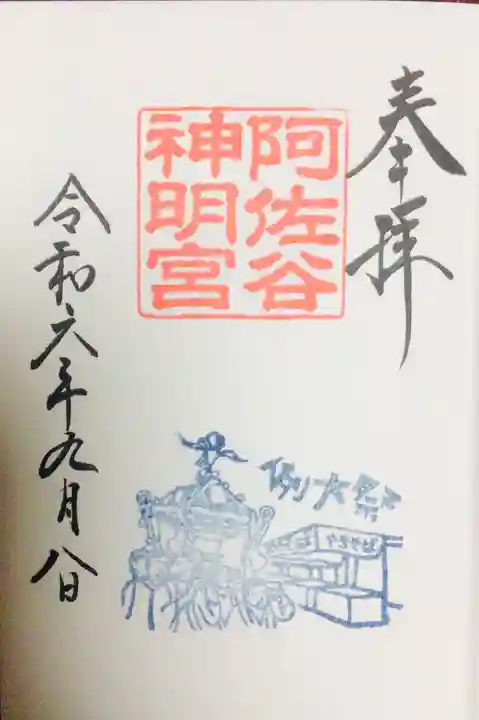 奉拝
阿佐谷
神明宮
例大祭
やきそば
令和六年九月八日